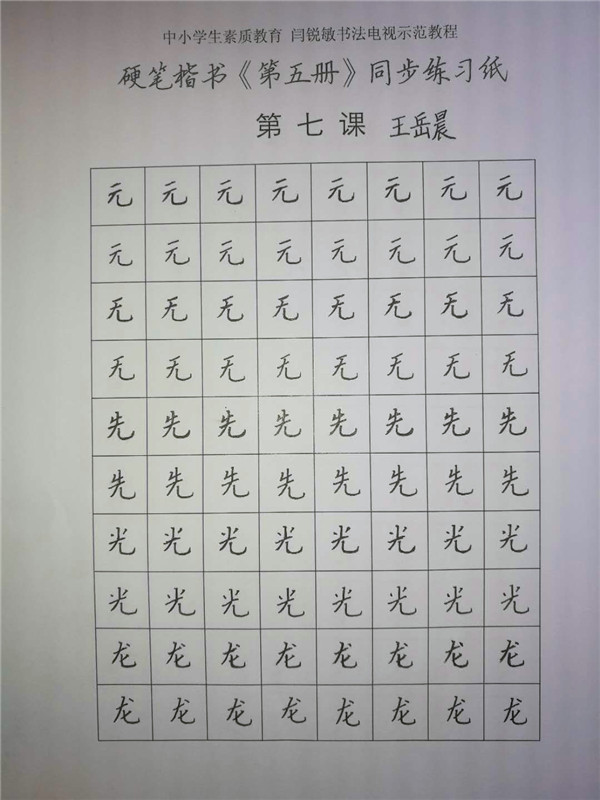 中小学生素质教育 闫锐敏书法电视示范教程
硬笔楷书《第五册》同步练习纸
第七课 王岳晨
元元元元元元元元
元元元元元元元元
无无无无无无无无
无无无无无无无无
先先先先先先先先
先先先先先先先先
光光光光光光光光
光光光光光光光光
龙龙龙龙龙龙龙龙
龙龙龙龙龙龙龙龙